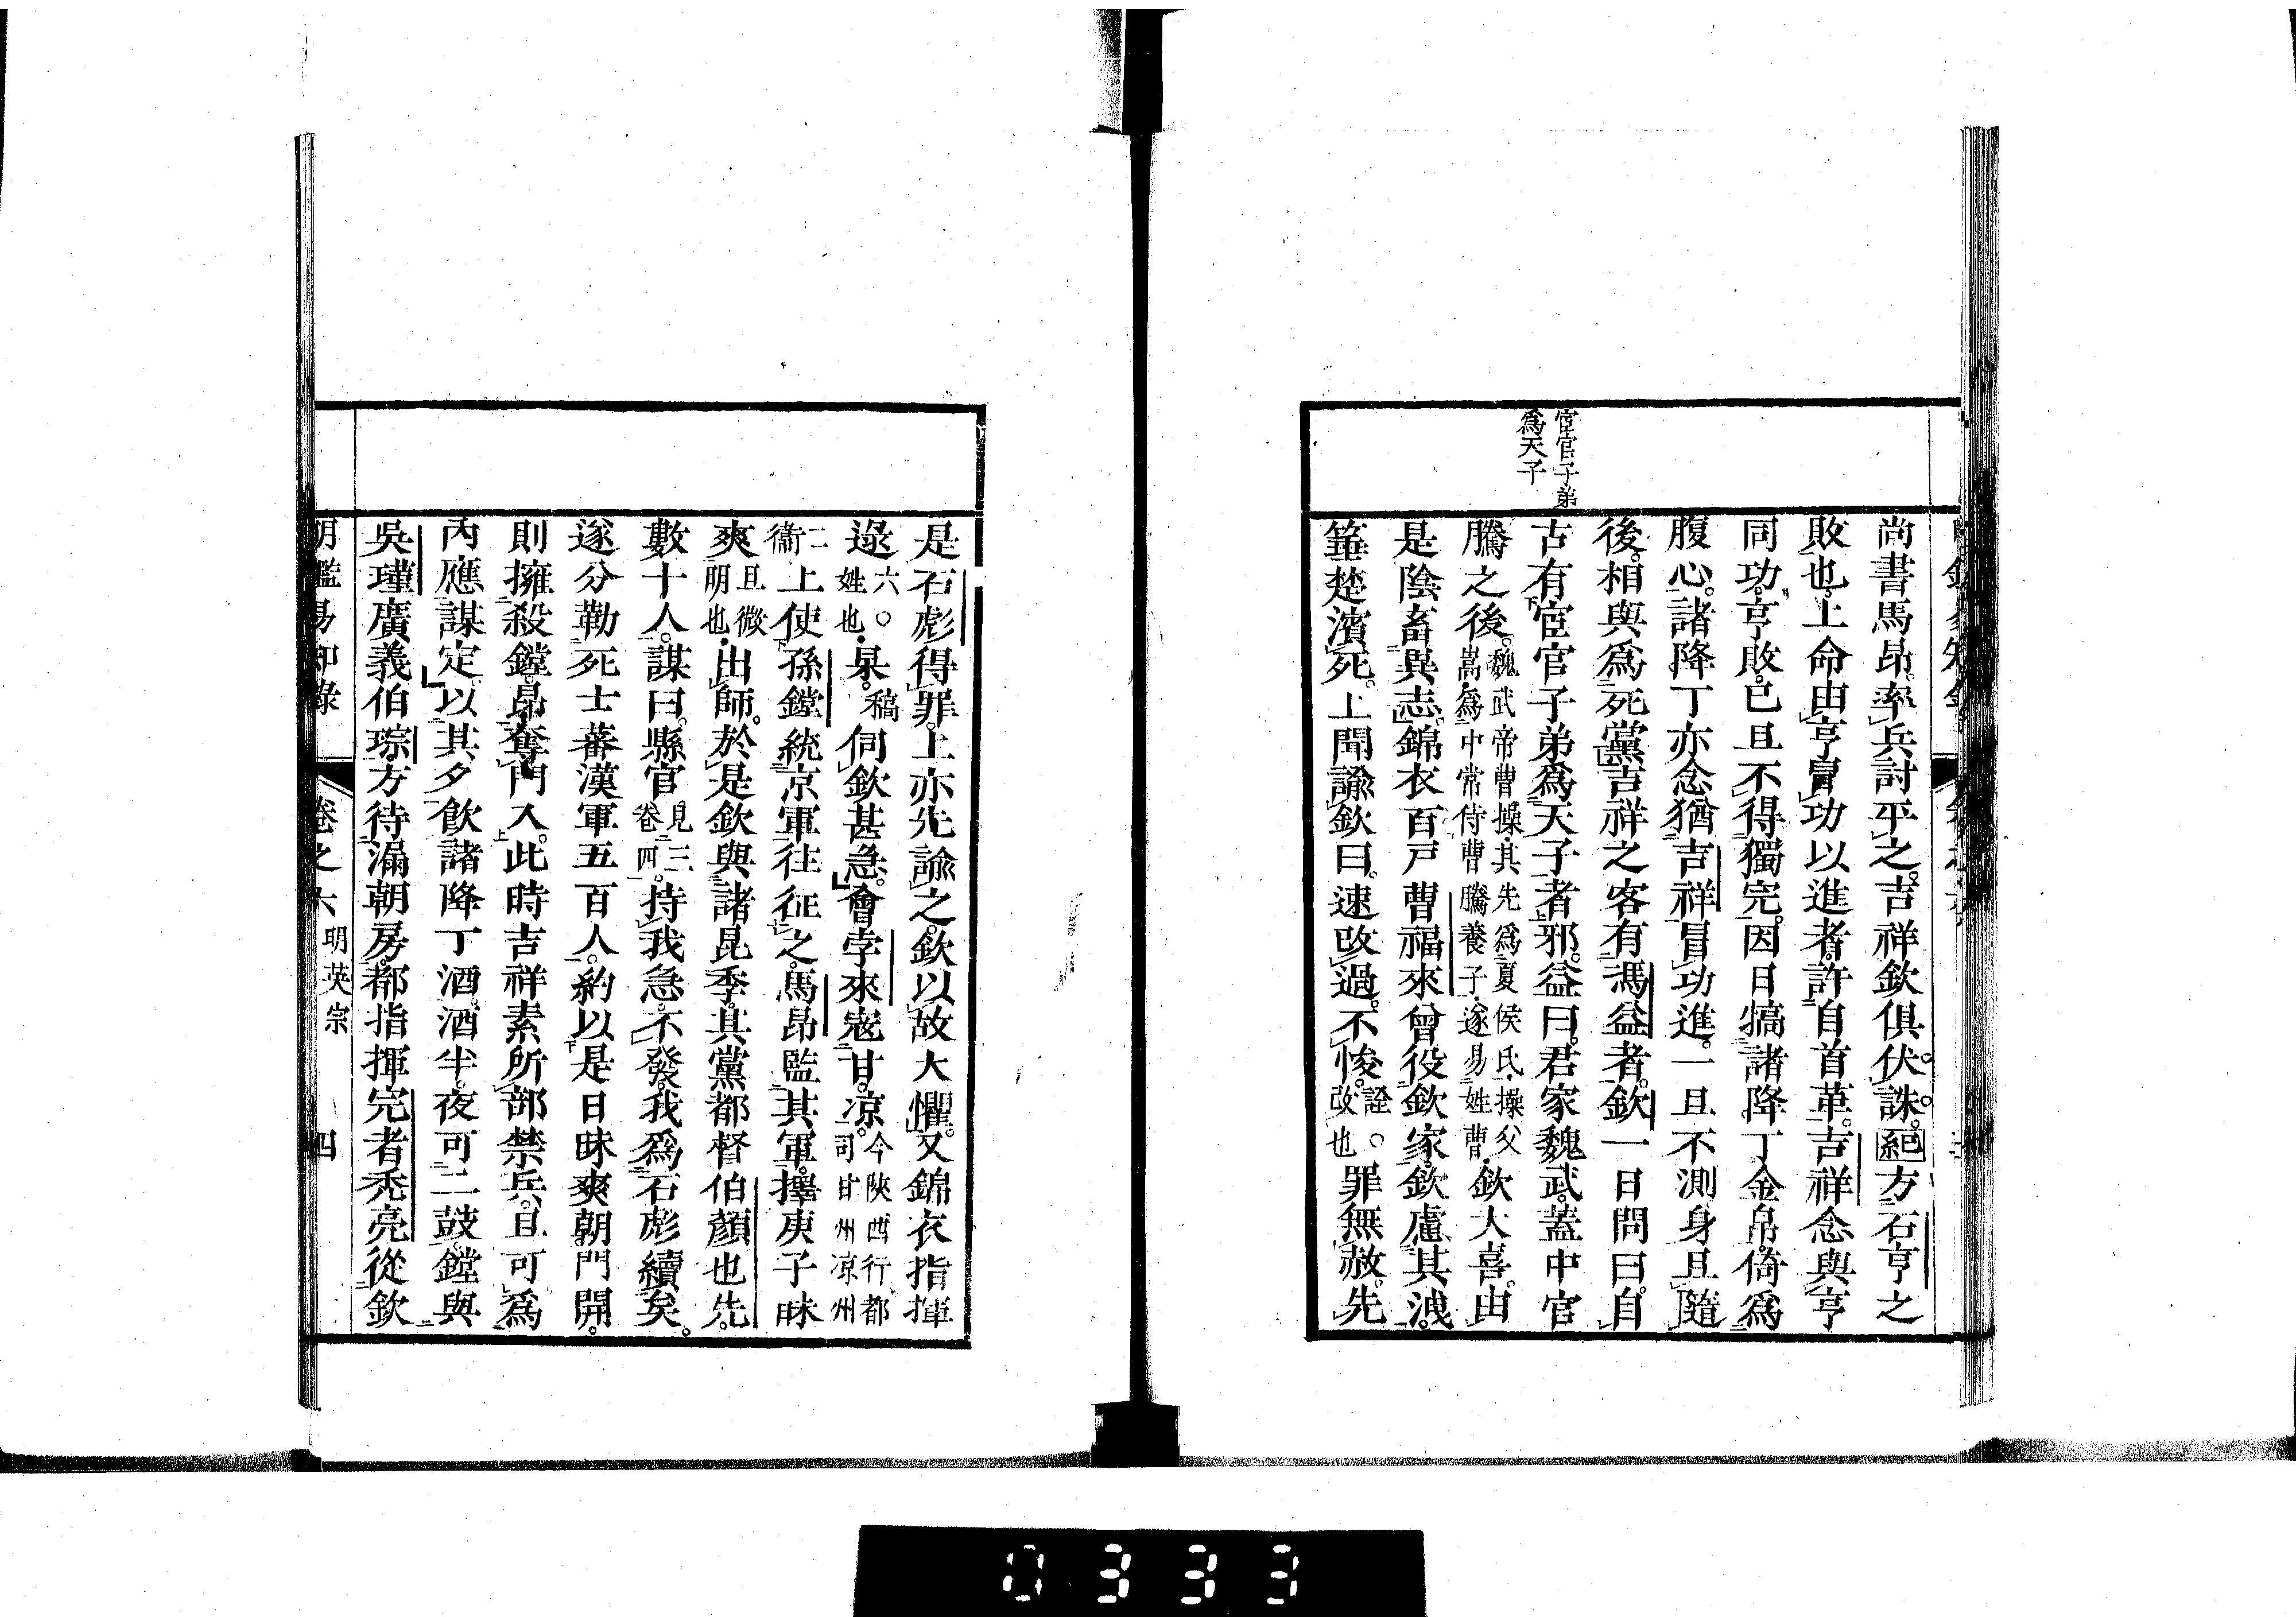 宦官子弟
爲天子
尚書馬昂。率兵討平之。吉祥欽俱伏誅。紀方石亨之
敗也。上命由亨冒功以進者。許自首革。吉祥念與亨
同功。亨敗。已且不得獨完。因日犒諸降丁金帛。倚爲
腹心。諸降丁亦念猶吉祥冒功進。一旦不測身且隨
後。相與爲死黨。吉祥之客有馮益者。欽一日問曰。自
古有宦官子弟爲天子者邪。益曰。君家魏武。蓋中官
騰之後。魏武帝曹操。其先爲夏侯氏。操父
嵩。爲中常侍曹騰養子。遂易姓曹。欽大喜。由
是陰畜異志。錦衣百戸曹福來曾役欽家。欽慮其洩。
箠楚濱死。上聞諭欽曰。速改過。不悛。詮○
改也罪無赦。先
是石彪得罪。上亦先諭之。欽以故大懼。又錦衣指揮
逯六○
姓也。杲。稿伺欽甚急。會孛來寇甘。凉。今陝西行都
司甘州凉州
二
衞上使孫鏜統京軍往征之。馬昂監其軍。擇庚子昧
爽且微
明也。出師。於是欽與諸昆季。其黨都督伯顏也先。
數十人。謀曰。縣官見三
卷四。持我急。不發。我爲石彪續矣。
遂分勒死士蕃漢軍五百人。約以是日昧爽朝門開。
則擁殺鏜。昂奪門入。此時吉祥素所部禁兵。且可爲
內應謀定。以其夕飮諸降丁酒。酒半。夜可二鼓。鏜與
吳瑾廣義伯琮。方待漏朝房。都指揮完者禿亮從欽
明鑑易知錄 卷之六 明英宗 四
0333